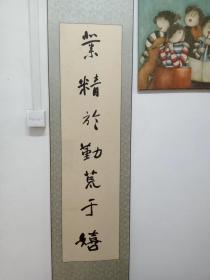 業精於勤荒于嬉